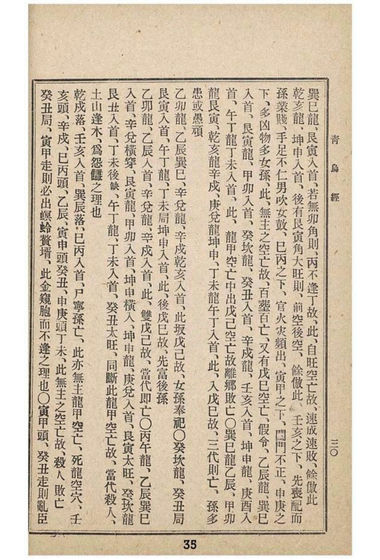 靑烏經
三〇
巽巳龍、艮寅入首、若無卯角則、丙不逢丁故、此、自旺空亡故、速成速敗、餘倣此
乾亥龍、坤申入首、後有艮寅角大旺則、前空後空、餘倣此、壬亥之下、先喪配而
孫業賤、手足不仁男吹女鼓、巳丙之下、官火灾頻出、寅甲之下、門不正、申庚之
下、多凶物多女孫、此、無主之空亡故、百塟百亡、又有戊巳空亡、假令、乙辰龍、巽巳
入首、艮寅龍、甲卯入首、癸坎龍、癸丑入首、辛戌龍、壬亥入首、坤申龍、庚酉入
首、午丁龍丁未入首、此、龍甲空亡中出戊己空亡故離鄕敗亡〇巽巳龍乙辰、甲卯
龍艮寅、乾亥龍辛戌、庚兌龍坤申、丁未龍午丁入首、此、入戊巳故、三代則亡、孫多
患或愚頑
乙卯龍、乙辰巽巳、辛兌龍、辛戌乾亥入首、此坂戊己故、女孫奉祀〇癸坎龍、癸丑局
艮寅入首、午丁龍、丁未局坤申入首、此後戊巳故、先富後孫
乙卯龍、乙辰入首、辛兌龍、辛戌入首、此、雙戊己故、當代卽亡〇丙午龍、乙辰巽巳
入首、辛兌橫穿、艮寅龍、甲卯入首、坤申橫入、坤申龍、庚兌入首、艮寅太旺、癸坎龍
艮丑入首、丁未後缺、午丁龍、丁未入首、癸丑太旺、同斷此龍甲空亡故、當代殺人、
土山逢木、爲怨讐之理也
乾戌落、壬亥入首、巽辰落、巳丙入首、寧孫亡、此亦無主龍甲空亡、死龍空穴、壬
亥頭、辛戌、巳丙頭、乙辰、寅甲頭癸丑、申庚頭丁未、此無主之空亡故、殺人敗亡
癸丑局、寅甲走則必出螟蛉贅壻、此金窺胞而不逢之理也〇寅甲頭、癸丑走則亂臣
35